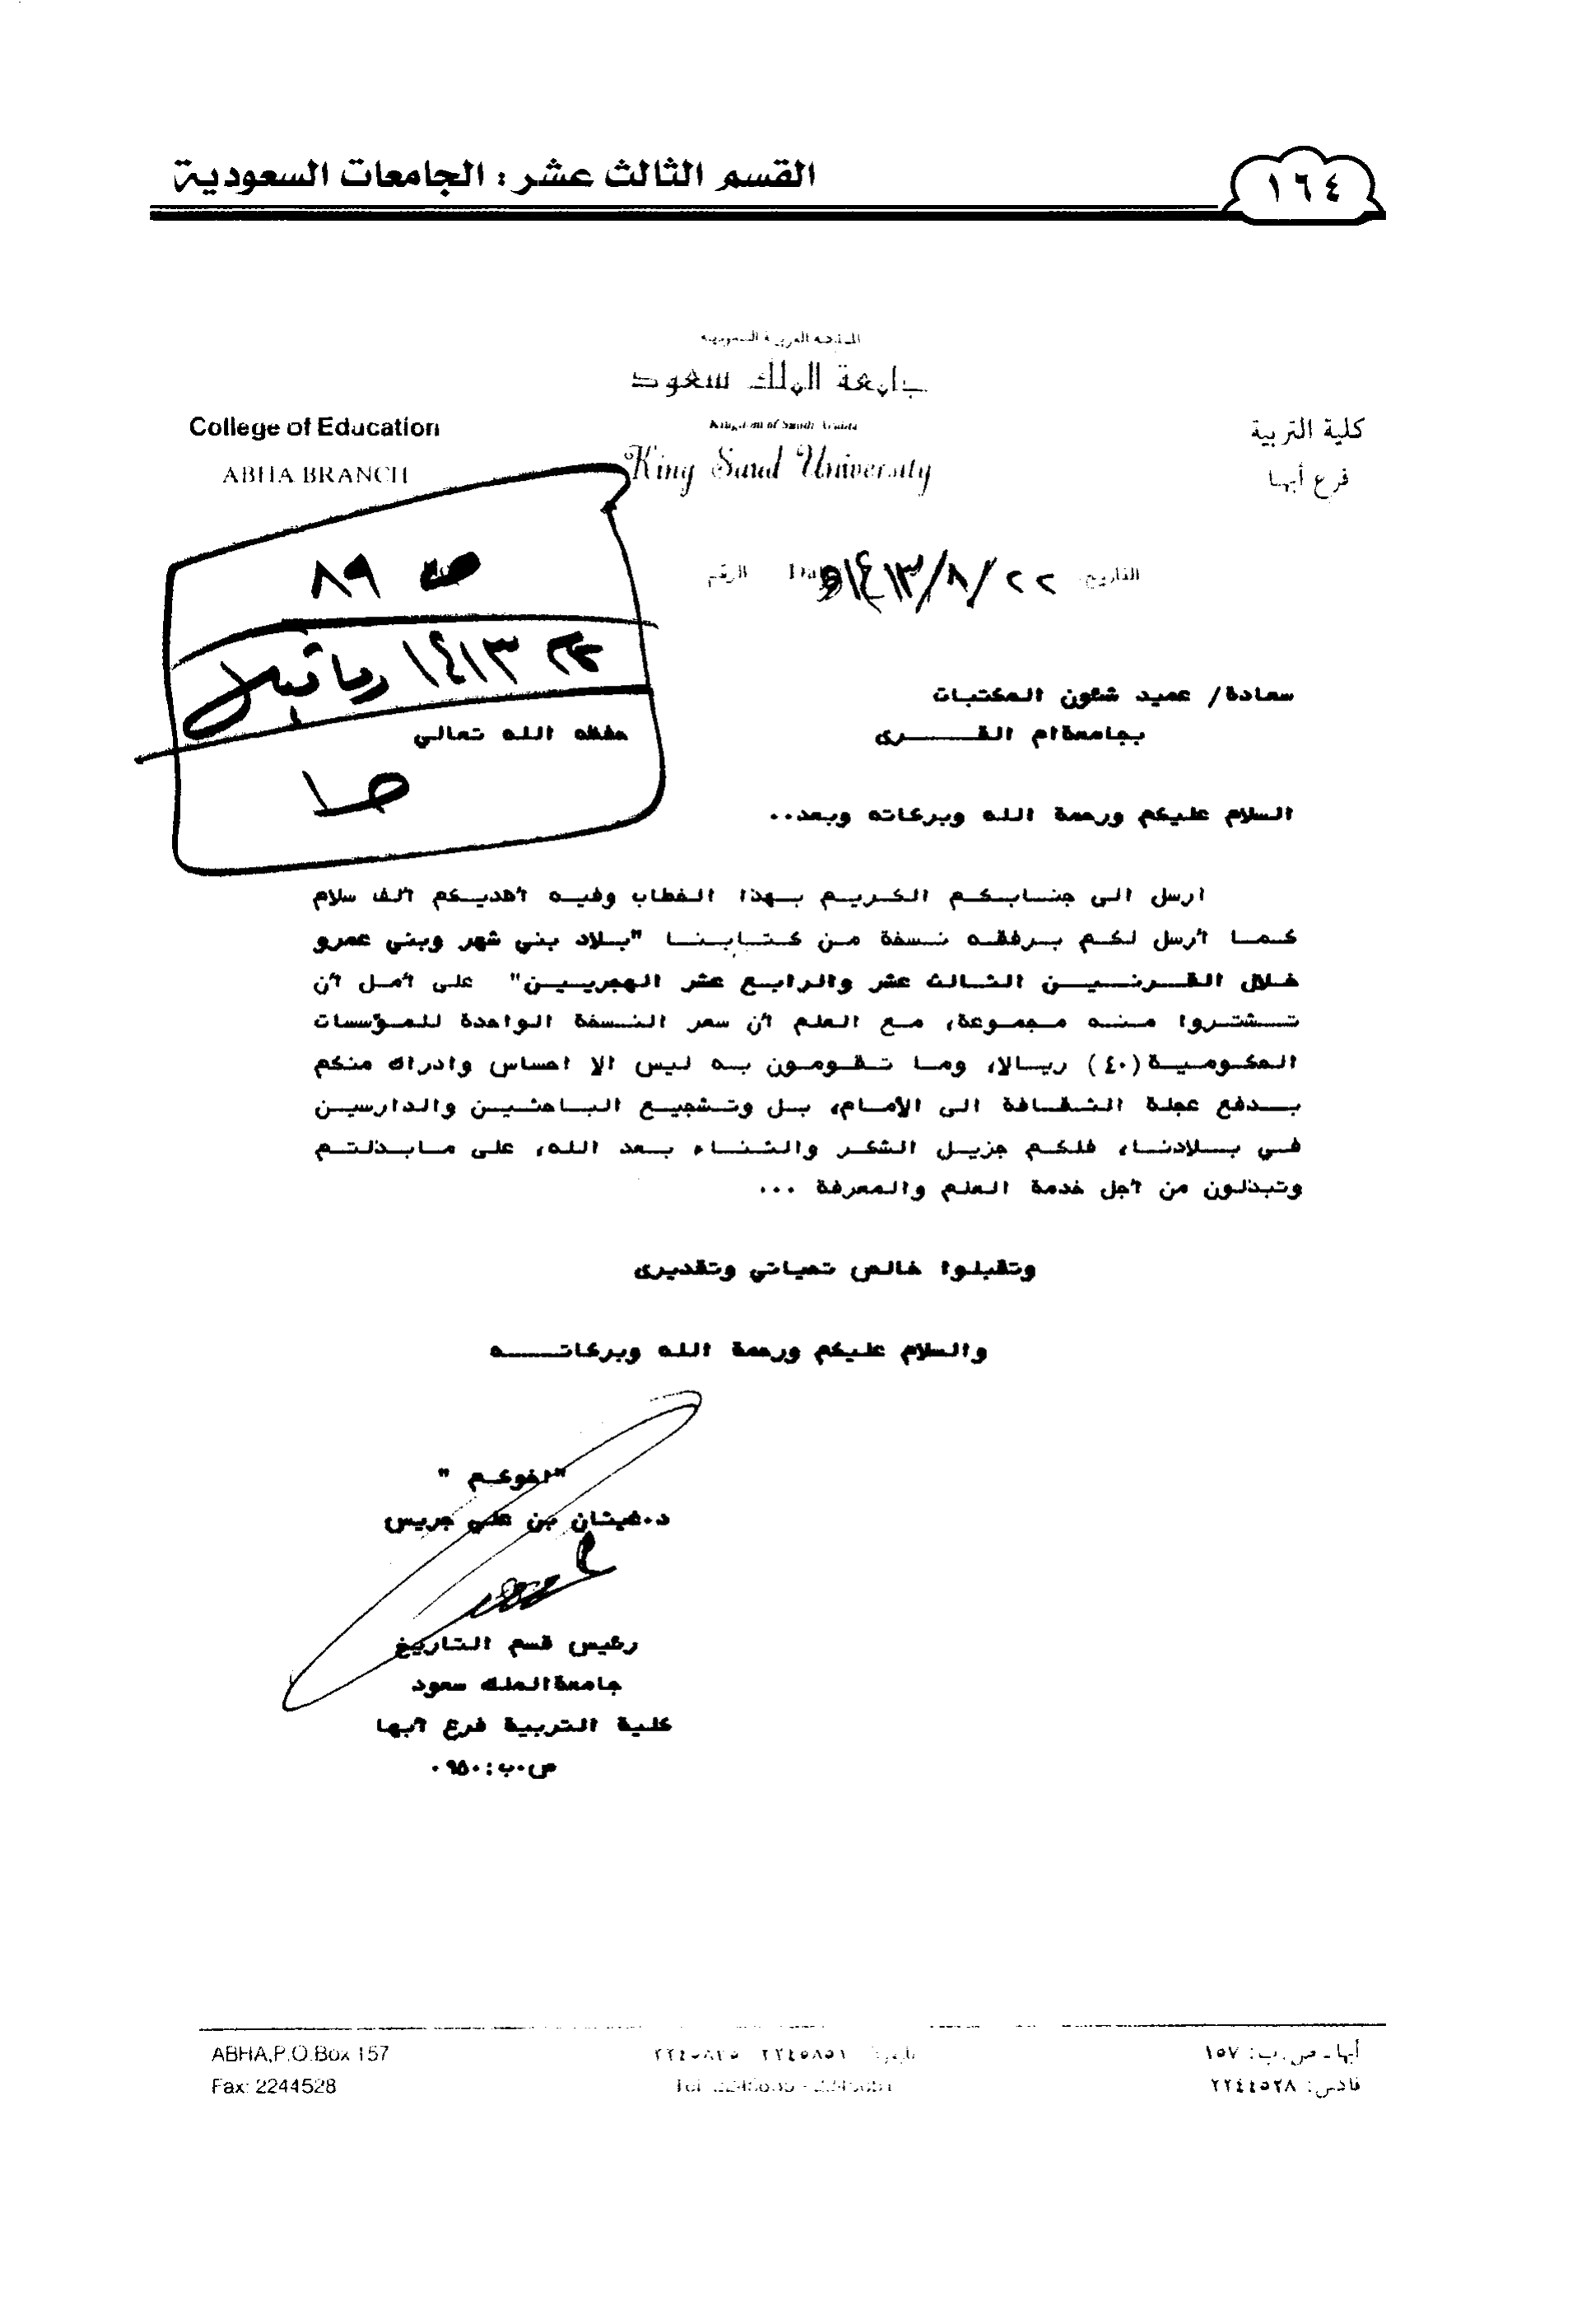 القسم الثالث عشر : الجامعات السعودية
١٦٤
المملكة العربية السعودية
جامعة الملك سعود
Kingdom of Saudi Arabia
King Saud University
College of Education
ABHA BRANCH
كلية التربية
فرع أبها
التاريخ: ٢٢/٨/١٤١٣هـ Date الرقم
ص ٨٩
١٤١٣
ص١
سعادة/ عميد شئون المكتبات
بجامعة ام القـــــرى حفظه الله تعالي
السلام عليكم ورحمة الله وبركاته وبعد..
ارسل الى جنابكم الكريم بهذا الخطاب وفيه أهديكم ألف سلام
كما أرسل لكم برفقه نسخة من كتابنا "بلاد بني شهر وبني عمرو
خلال القرنين الثالث عشر والرابع عشر الهجريين" على أمل أن
تشتروا منه مجموعة، مع العلم أن سعر النسخة الواحدة للمؤسسات
الحكومية (٤٠) ريالا، وما تقومون به ليس الا احساس وادراك منكم
بدفع عجلة الثقافة الى الأمام، بل وتشجيع الباحثين والدارسين
في بلادنا، فلكم جزيل الشكر والثناء بعد الله، على مابذلتم
وتبذلون من أجل خدمة العلم والمعرفة ...
وتقبلوا خالص تحياتي وتقديرى
والسلام عليكم ورحمة الله وبركاتـــــه
"اخوكم "
د.غيثان بن علي جريس
رئيس قسم التاريخ
جامعة الملك سعود
كلية التربية فرع أبها
ص.ب:٩٥٠٠
ABHA,P.O.Box 157
Fax: 2244528
أبها ـ ص. ب: ١٥٧
فاكس: ٢٢٤٤٥٢٨